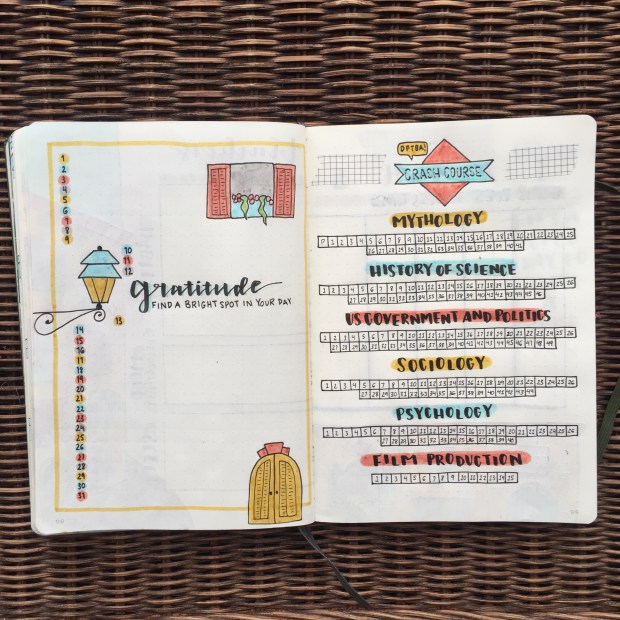 1
2
3
4
5
6
7
8
9
10
11
12
gratitude
FIND A BRIGHT SPOT IN YOUR DAY
13
14
15
16
17
18
19
20
21
22
23
24
25
26
27
28
29
30
31
DFTBA!
CRASH COURSE
MYTHOLOGY
0 1 2 3 4 5 6 7 8 9 10 11 12 13 14 15 16 17 18 19 20 21 22 23 24 25
26 27 28 29 30 31 32 33 34 35 36 37 38 39 40 41
HISTORY OF SCIENCE
1 2 3 4 5 6 7 8 9 10 11 12 13 14 15 16 17 18 19 20 21 22 23 24 25 26
27 28 29 30 31 32 33 34 35 36 37 38 39 40 41 42 43 44 45 46
US GOVERNMENT AND POLITICS
1 2 3 4 5 6 7 8 9 10 11 12 13 14 15 16 17 18 19 20 21 22 23 24 25 26
27 28 29 30 31 32 33 34 35 36 37 38 39 40 41 42 43 44 45 46 47 48 49
SOCIOLOGY
1 2 3 4 5 6 7 8 9 10 11 12 13 14 15 16 17 18 19 20 21 22 23 24 25 26
27 28 29 30 31 32 33 34 35 36 37 38 39 40 41 42 43 44
PSYCHOLOGY
1 2 3 4 5 6 7 8 9 10 11 12 13 14 15 16 17 18 19 20 21 22 23 24 25 26
27 28 29 30 31 32 33 34 35 36 37 38 39 40
FILM PRODUCTION
1 2 3 4 5 6 7 8 9 10 11 12 13 14 15